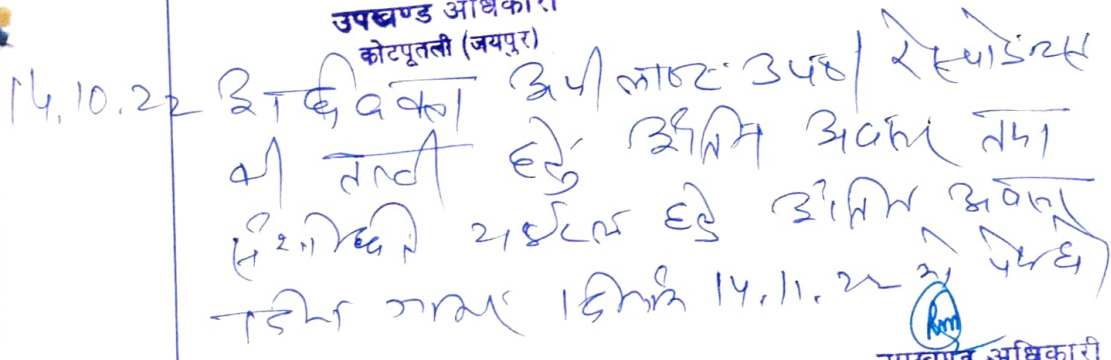 उपखण्ड अधिकारी
कोटपूतली (जयपुर)
14.10.22 अधिवक्ता अपीलान्ट उप०। रेस्पोडेन्टस
की तल्बी हेतु अंतिम अवसर तथा
संशोधित टाईटल हेतु अंतिम अवसर
दिनांक 14.11.22 को पेश हो
उपखण्ड अधिकारी